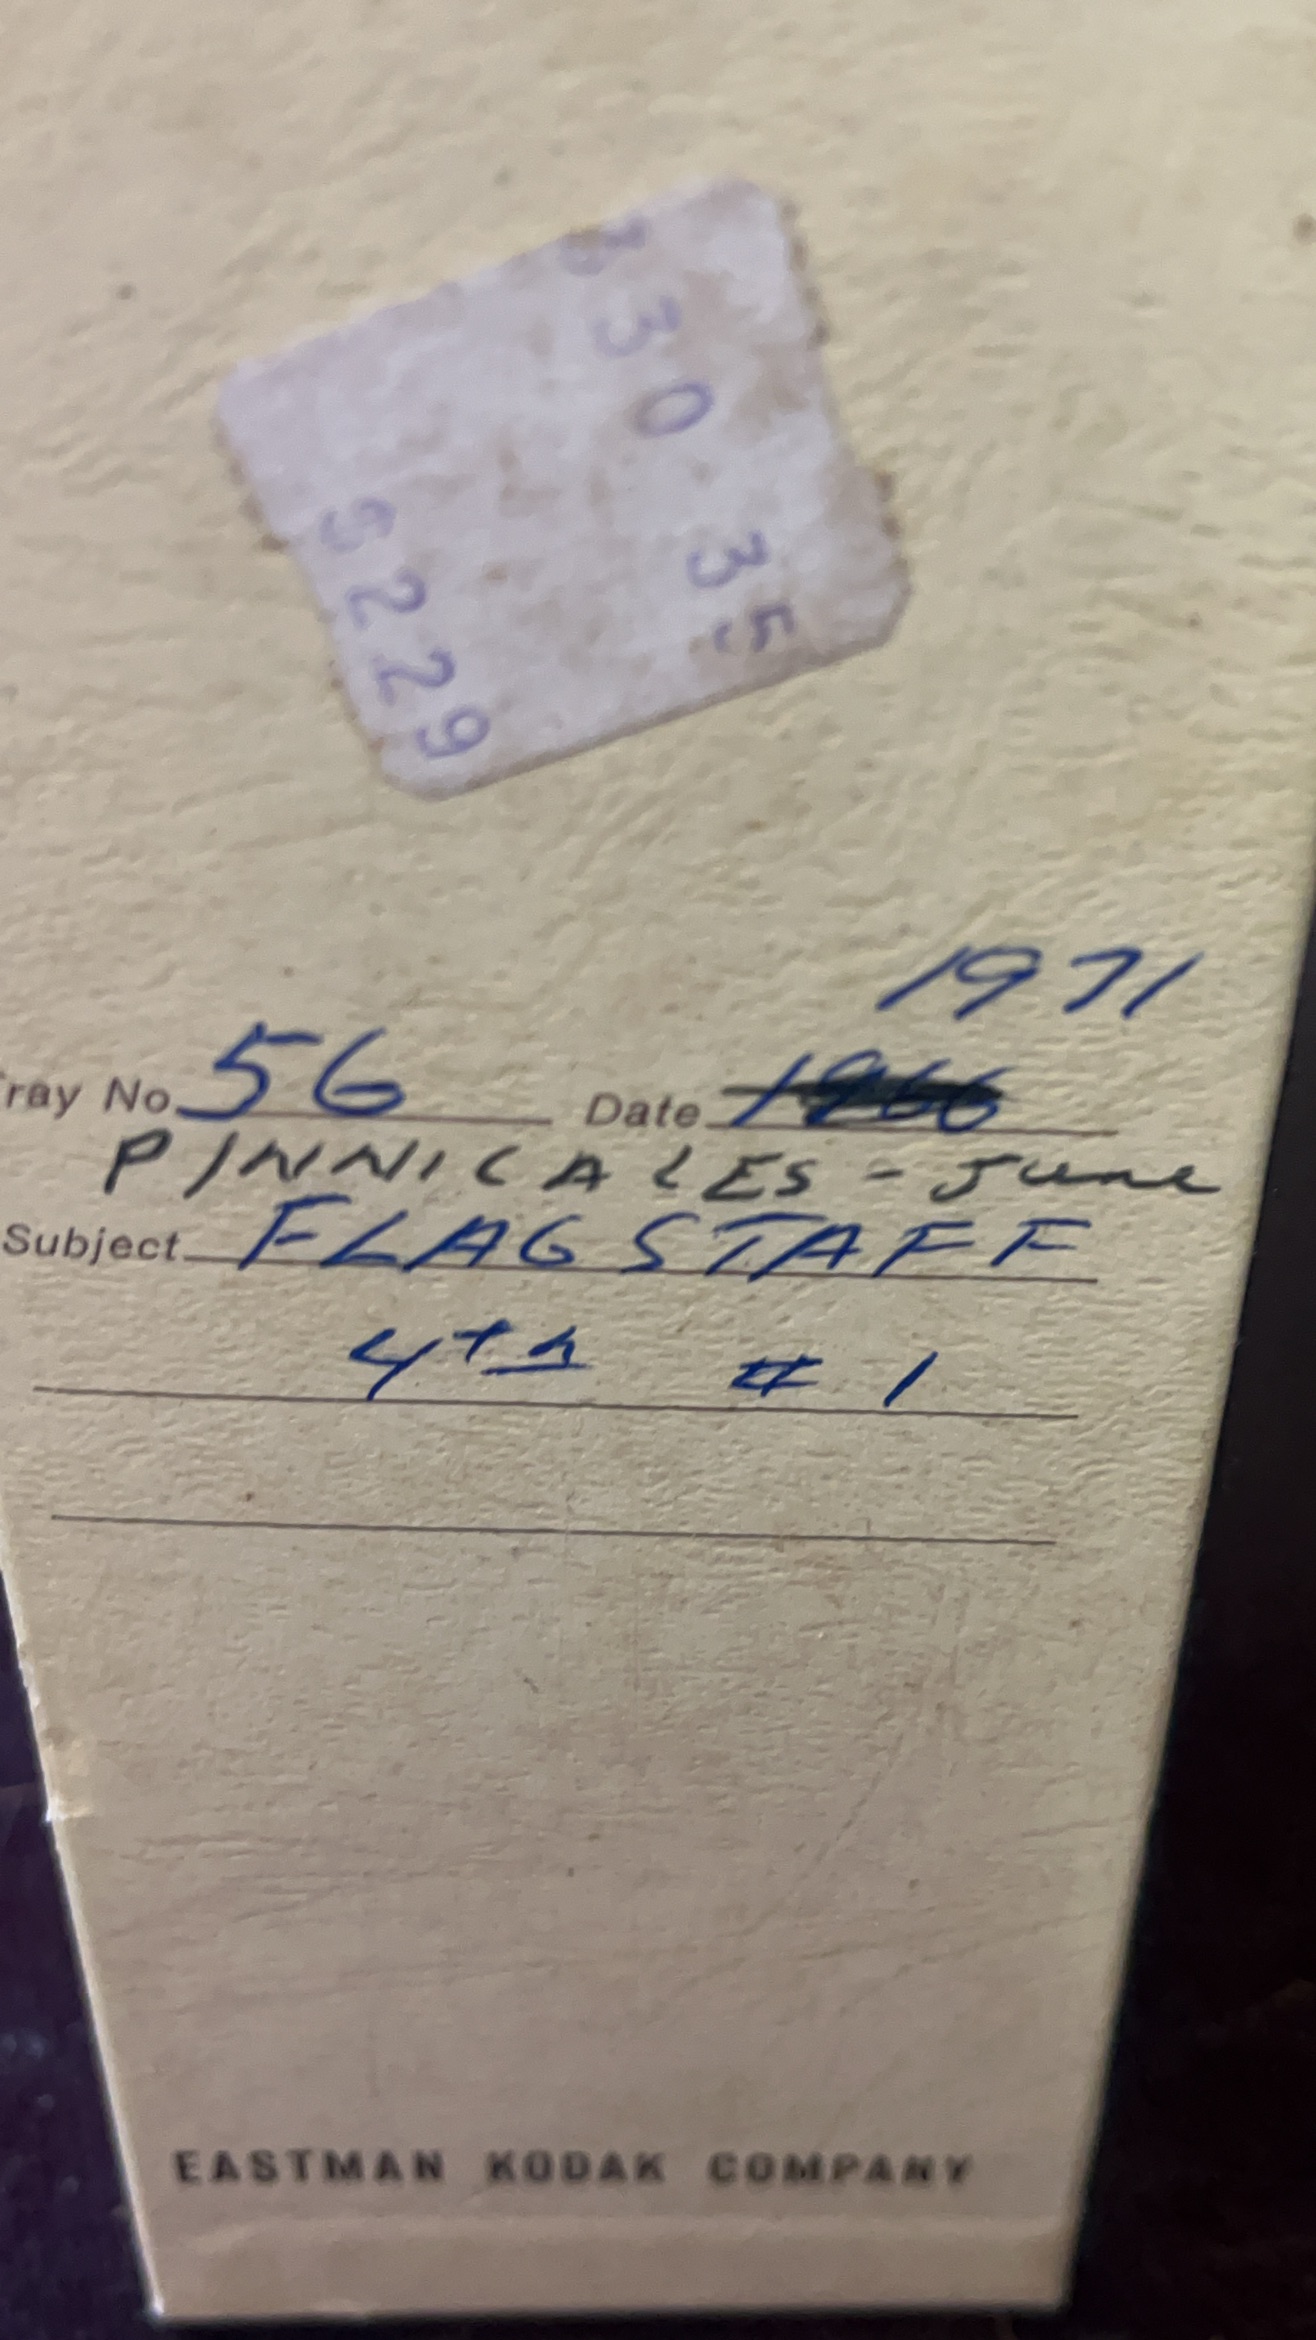 330 35
5229
1971
Tray No. 56 Date 1966
PINNICALES - June
Subject FLAGSTAFF
4th #1
EASTMAN KODAK COMPANY